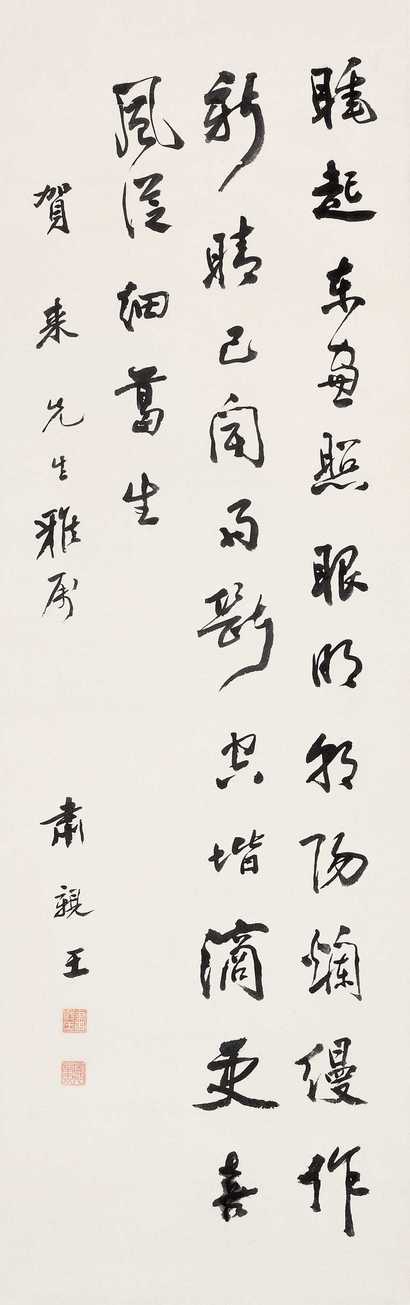 睡起東窗照眼明初陽爛縵作
新晴已聞雨斷空堦滴更喜
風從細葛生
賀來先生雅属
肅親王